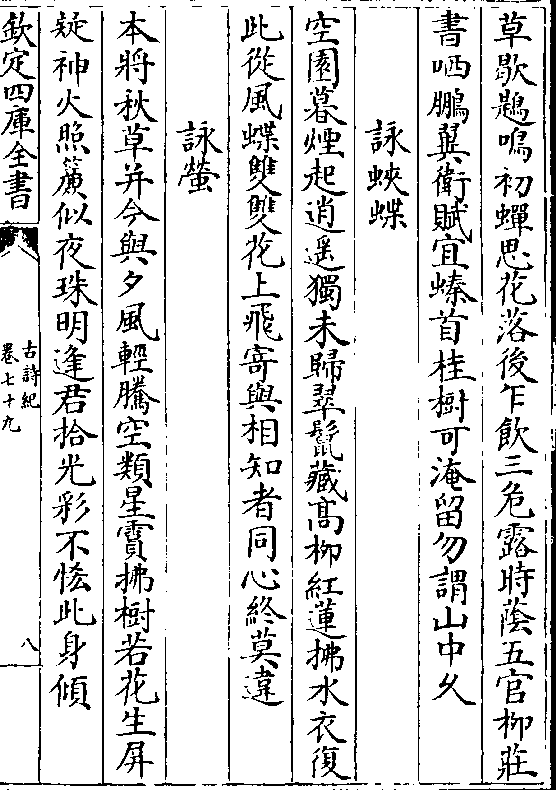 草歇鶗鳴初蟬思花落後乍飲三危露時蔭五官柳莊
書哂鵬翼衛賦宜螓首桂樹可淹留勿謂山中久
詠蛺蝶
空園暮煙起逍遥獨未歸翠鬛藏髙柳紅蓮拂水衣復
此從風蝶雙雙花上飛寄與相知者同心終莫違
詠螢
本將秋草并今與夕風輕騰空類星霣拂樹若花生屏
疑神火照簾似夜珠明逢君拾光彩不恡此身傾
欽定四庫全書
古詩紀
卷七十九
八